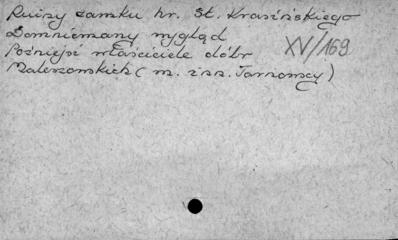 Ruiny zamku hr. St. Krasińskiego
Domniemany wygląd
Późniejsi właściciele dóbr
XV/169
Malerzowskich (m. inn. Tarnowscy)